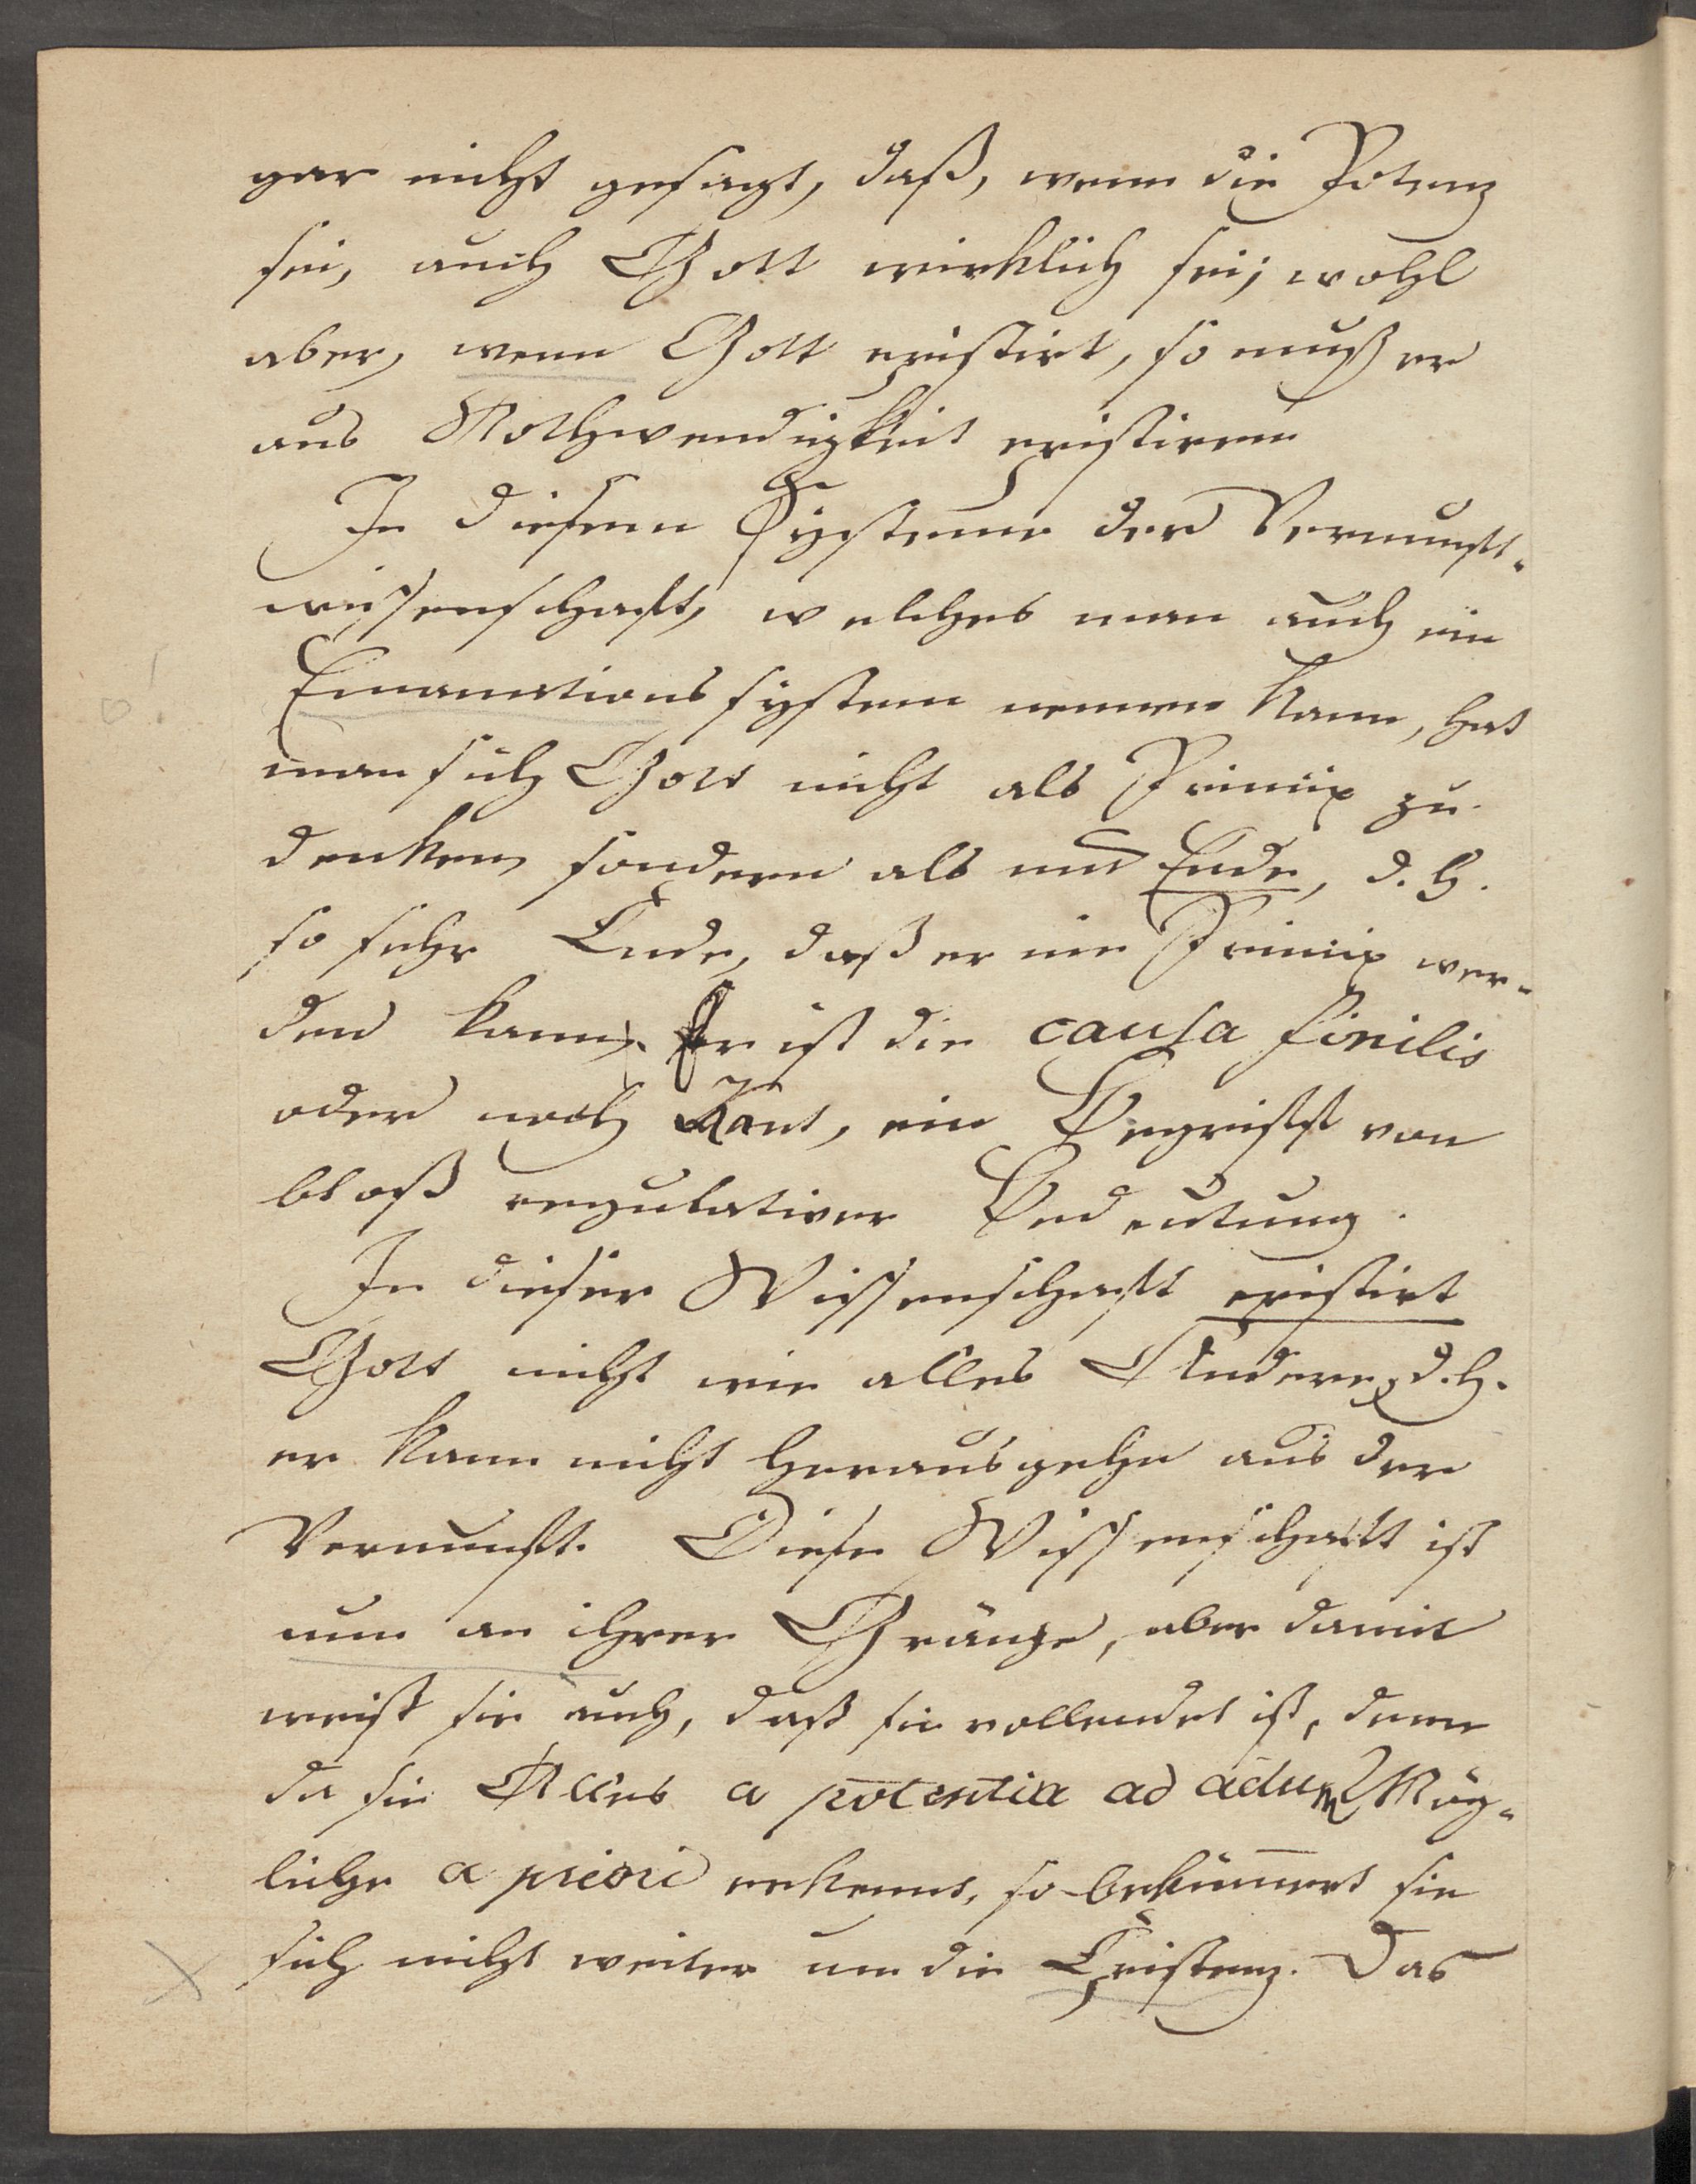 gar nicht gesagt, daß, wenn die Potenz
sei, auch Gott wirklich sei; wohl
aber, wenn Gott existirt, so muß er
aus Nothwendigkeit existiren
In diesem Systeme der Vernunft-
wissenschaft, welches man auch ein
Emanationssystem nennen kann, hat
man sich Gott nicht als Prinzip zu
denken, sondern als nur Ende, d. h.
so sehr Ende, daß er nie Prinzip wer-
den kann. Er ist die causa finilis
oder nach Kant, ein Begriff von
bloß regulativer Bedeutung.
In dieser Wissenschaft existirt
Gott nicht wie alles Andere, d. h.
er kann nicht herausgehn aus der
Vernunft. Diese Wissenschaft ist
nun an ihrer Gränze, aber damit
weiß sie auch, daß sie vollendet ist, denn
da sie Alles a potentia ad actum Mög-
liche a priori erkennt, so bekümert sie
sich nicht weiter um die Existenz. Das